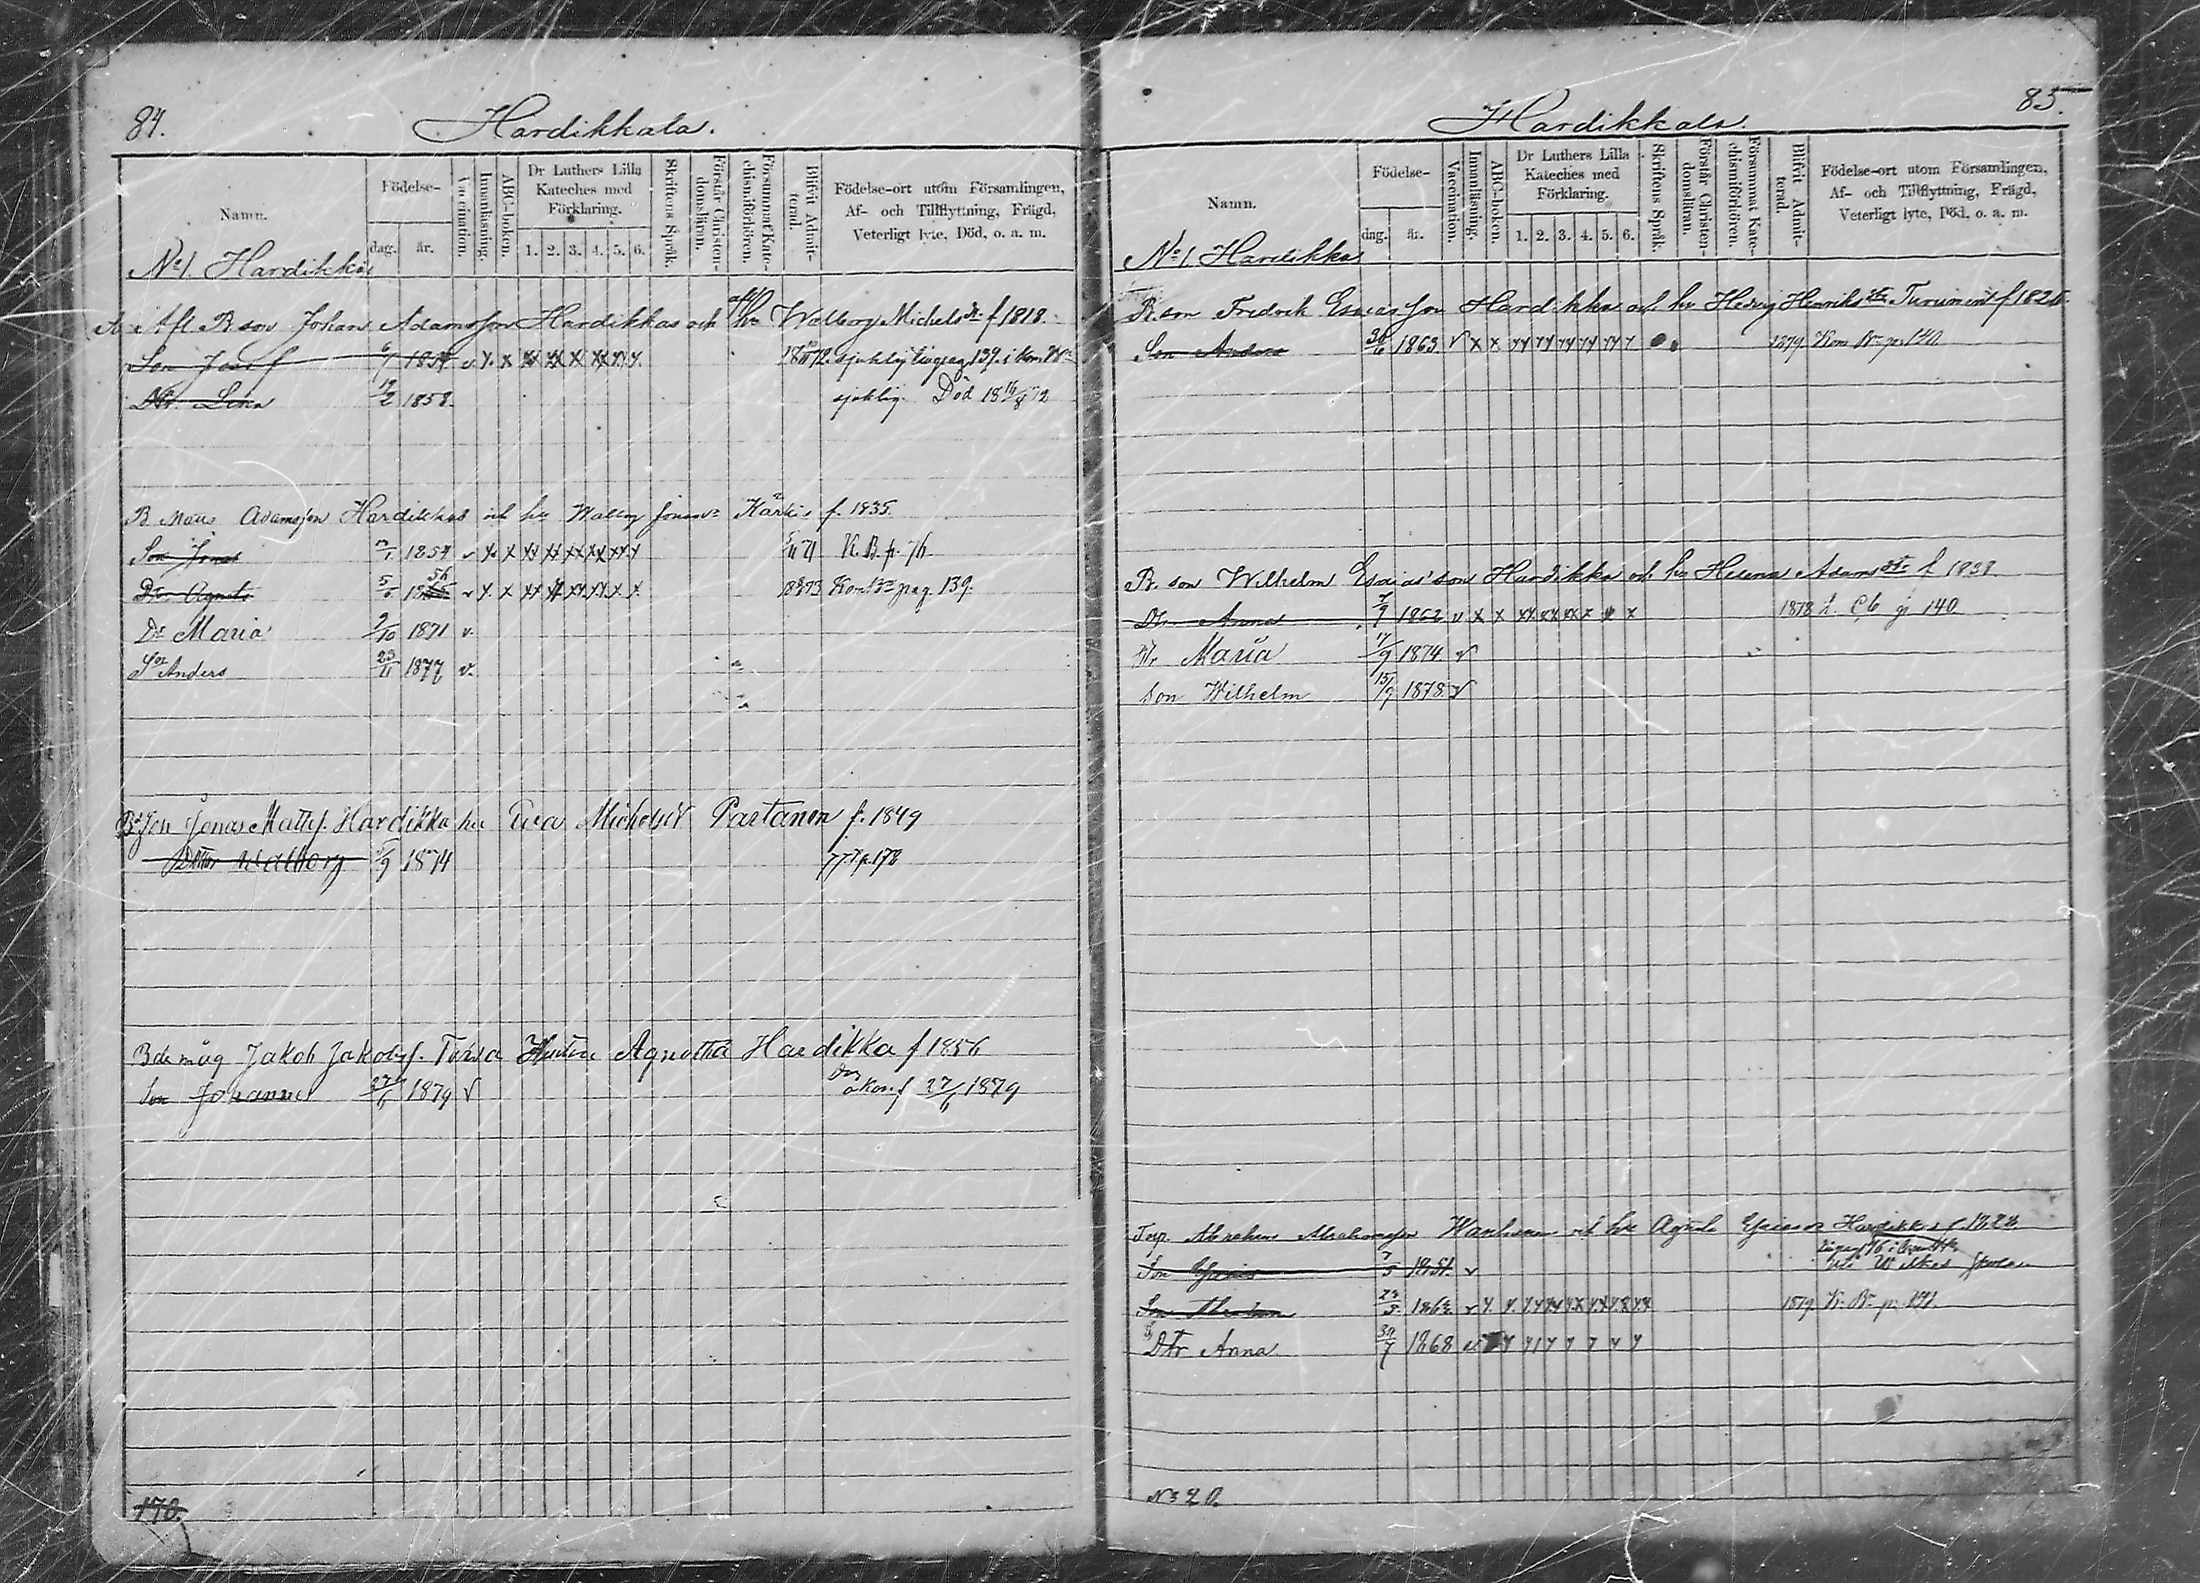 84.
Hardikkala.
Namn.
Födelse-
dag. år.
Vaccination.
Innanläsning.
ABC-boken.
Dr Luthers Lilla Kateches med Förklaring.
1. 2. 3. 4. 5. 6.
Skriftens Språk.
Förstår Christendomsläran.
Försummat Katechismiförhören.
Blifvit Admitterad.
Födelse-ort utom Församlingen,
Af- och Tillflyttning, Frägd,
Veterligt lyte, Död, o. a. m.
No 1. Hardikka
Afl. B. son Johan Adamsson Hardikkas och hu Walborg Michels dr f 1818.
Son Josef 6/1 1854 v x x xx xx x xx x x
Dtr. Lena 19/2 1858. sjuklig. Död 18 16/8 72
B Matts Adamsson Hardikkas och hu Walborg Jonas Kärki f. 1835
Son Jonas 1854 v x x xx xx xx xx x x 71 K. B. p. 76
Dtr. Agneta 5/6 1856 v x x xx xx xx x x 1873 pag. 139.
Dr Maria 9/10 1871 v.
Son Anders 23/11 1877 v.
Bd Son Jonas Matts. Hardikka hu Eva Michelsdr Partanen f. 1849
Dotter Walborg 1/9 1874 p. 178
Bde måg Jakob Jakobs. Tursa Hustru Agnetha Hardikka f 1856
Son Johannes 27/6 1879 v 27/6 1879
170.
85.
Hardikkala.
Namn.
Födelse-
dag. år.
Vaccination.
Innanläsning.
ABC-boken.
Dr Luthers Lilla Kateches med Förklaring.
1. 2. 3. 4. 5. 6.
Skriftens Språk.
Förstår Christendomsläran.
Försummat Katechismiförhören.
Blifvit Admitterad.
Födelse-ort utom Församlingen,
Af- och Tillflyttning, Frägd,
Veterligt lyte, Död, o. a. m.
No 1. Hardikkas
B. son Fredrik Esaiasson Hardikka och hu Hedvig Henriks dtr Turunen f 1826.
Son Anders 1863 v x x 1879 Kom. Bn p. 140
B. son Wilhelm Esaias'son Hardikka och hu Helena Adams dtr f 1838
Dtr. Anna 7/9 1862 v x x xx xx xx x x 1878 p 140
Dtr Maria 17/9 1874 v
Son Wilhelm 15/9 1878 v
Torp. Abraham Abrahamsson och hu Agneta Esaias dr Hardikka f. 1828
Son Esaias 7/5 v
Son Abraham 23/5 1862 v 1879 K. Bn p.
Dtr Anna 30/7 1868